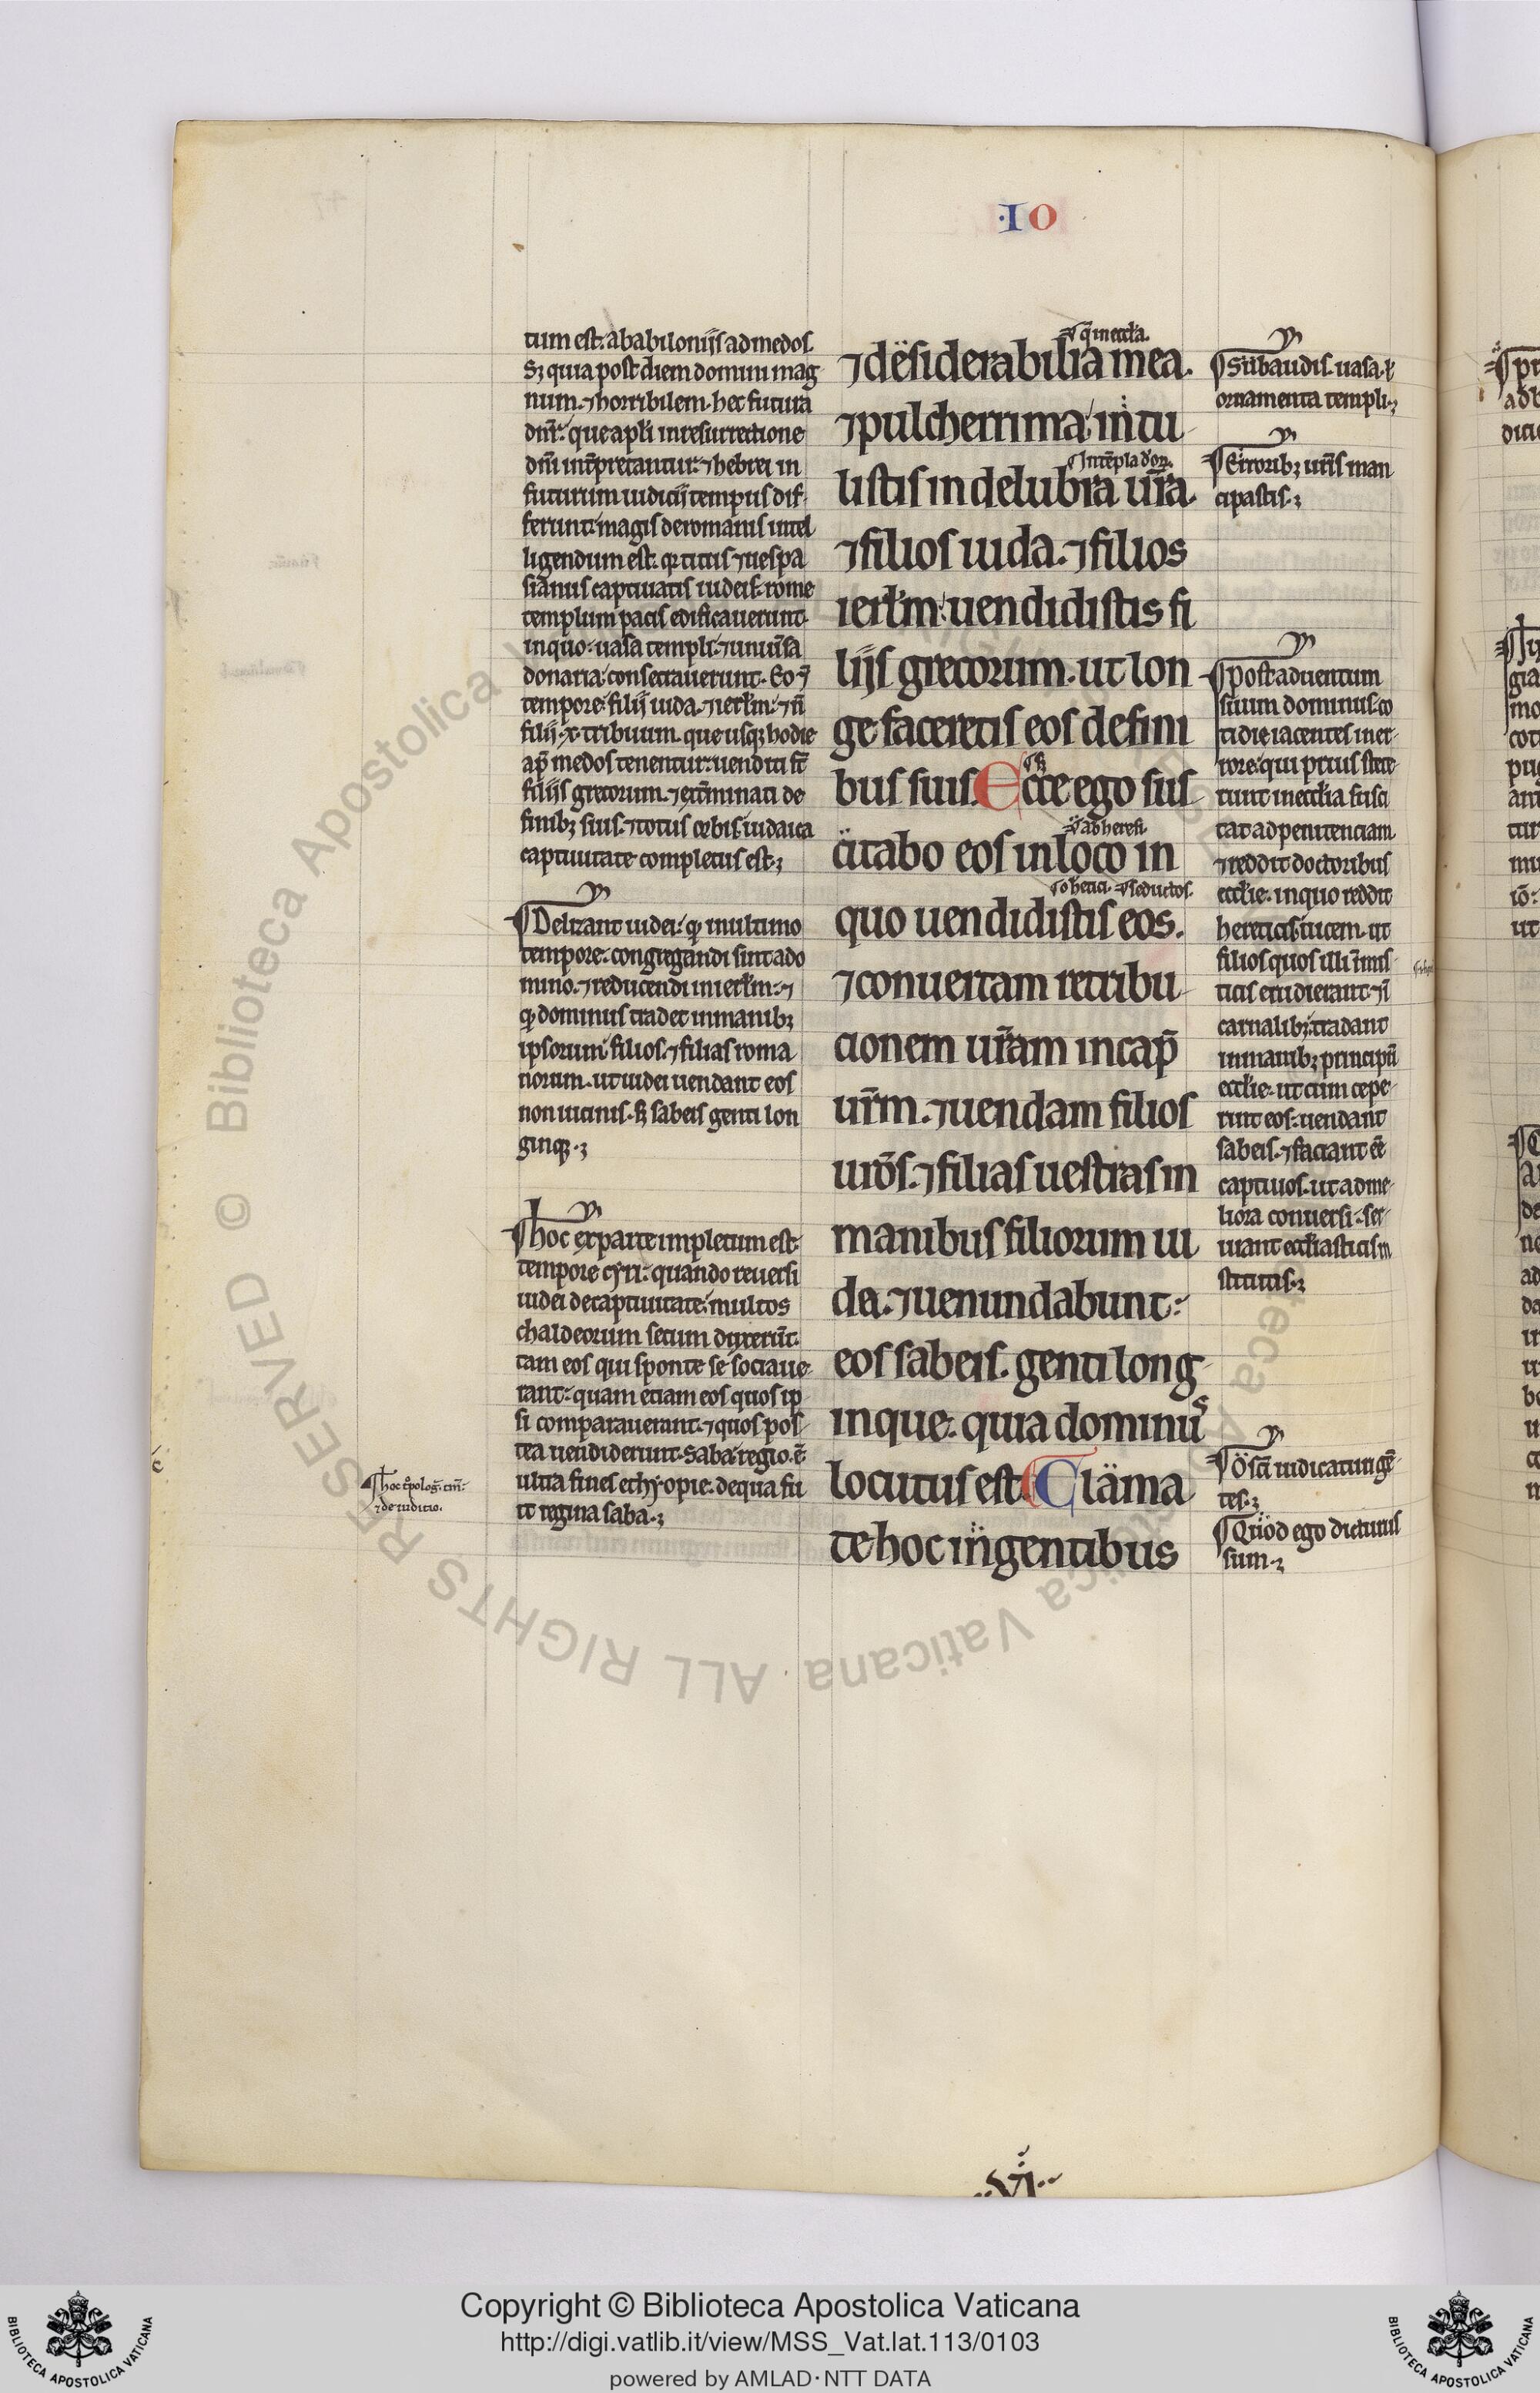 ·IO
tum est. a babilonijs ad medos.
Sꝫ quia post diem domini mag
num. ⁊ horribilem. hec futura
dn̄r. que apl̓i in resurrectione
dn̄i int̄p̄retantur. ⁊ hebrei in
futurum iudicij tempus dif-
ferunt. magis de romanis intel
ligendum est. qꝫ titus ⁊ uespa
sianus captiuatis iudeis. rome
templum pacis edificauerunt.
in quo. uasa templi. ⁊ uniu̓sa
donaria consecrauerunt. Eo ⁊
tempore. filij iuda. ⁊ ierl̓m. ⁊ n̄
filij .x. tribuum. que usqꝫ hodie
ap̄ medos tenentur. uenditi st̄
filijs grecorum. ⁊ ext̓minati de
finibꝫ suis. ⁊ totus orbis iudaica
captiuitate completus est.;
¶ Delirant iudei. qꝫ in ultimo
tempore. congregandi sint a do
mino. ⁊ reducendi in ierl̓m. ⁊
qꝫ dominus tradet in manibꝫ
ipsorum filios. ⁊ filias roma
norum. ut iudei uendant eos
non uicinis. sꝫ sabeis genti lon
ginqꝫ.;
¶ hoc ex parte impletum est.
tempore cyri. quando reuersi
iudei de captiuitate. multos
chaldeorum secum duxerūt.
tam eos qui sponte se sociaue-
rant. quam etiam eos quos ip
si comparauerant. ⁊ quos pos-
tea uendiderunt. Saba. regio. ē
ultra fines ethyopie. de qua fu
it regina saba.;
⁊ de iuditio.
¶ q̄ in eccl̓a.
⁊ desiderabilia mea.
⁊ pulcherrima. intu
¶ In tēpla d̓oꝝ.
listis in delubra ur̄a.
⁊ filios iuda. ⁊ filios
ierl̓m. uendidistis fi
lijs grecorum. ut lon
ge faceretis eos de fini
bus suis. Ecce ego sus
¶ ad heresī.
citabo eos in loco in
¶ o heretici. ¶ seductos.
quo uendidistis eos.
⁊ conuertam retribu
cionem ur̄am in cap̄
ur̄m. ⁊ uendam filios
uro᷒s. ⁊ filias uestras in
manibus filiorum iu
da. ⁊ uenundabunt
eos sabeis. genti long
inque. quia dominus
locutus est. Clama
te hoc in gentibus
¶ subaudis. uasa. ⁊
ornamenta templi.;
¶ Erroribꝫ ur̄is man
cipastis.;
¶ post aduentum
suum dominus. co
tidie iacentes in er-
rore. qui prius stete-
runt in eccl̓ia susci
tat ad penitenciam
⁊ reddit doctoribus
eccl̓ie. in quo reddit
hereticis uicem. ut
filios quos illi in mis-
ticis erudierant. ⁊ ī
carnalibꝫ. tradant
in manibꝫ principū
eccl̓ie. ut cum cepe-
rint eos. uendant
sabeis. ⁊ faciant eē
captiuos. ut ad me-
liora conuersi. ser-
uiant eccl̓iasticis in
stitutis.;
tes.;
¶ Quod ego dicturus
sum.;
.VI.
Copyright © Biblioteca Apostolica Vaticana
http://digi.vatlib.it/view/MSS_Vat.lat.113/0103
powered by AMLAD·NTT DATA
BIBLIOTECA APOSTOLICA VATICANA
BIBLIOTECA APOSTOLICA VATICANA
© Biblioteca Apostolica Vaticana ALL RIGHTS RESERVED